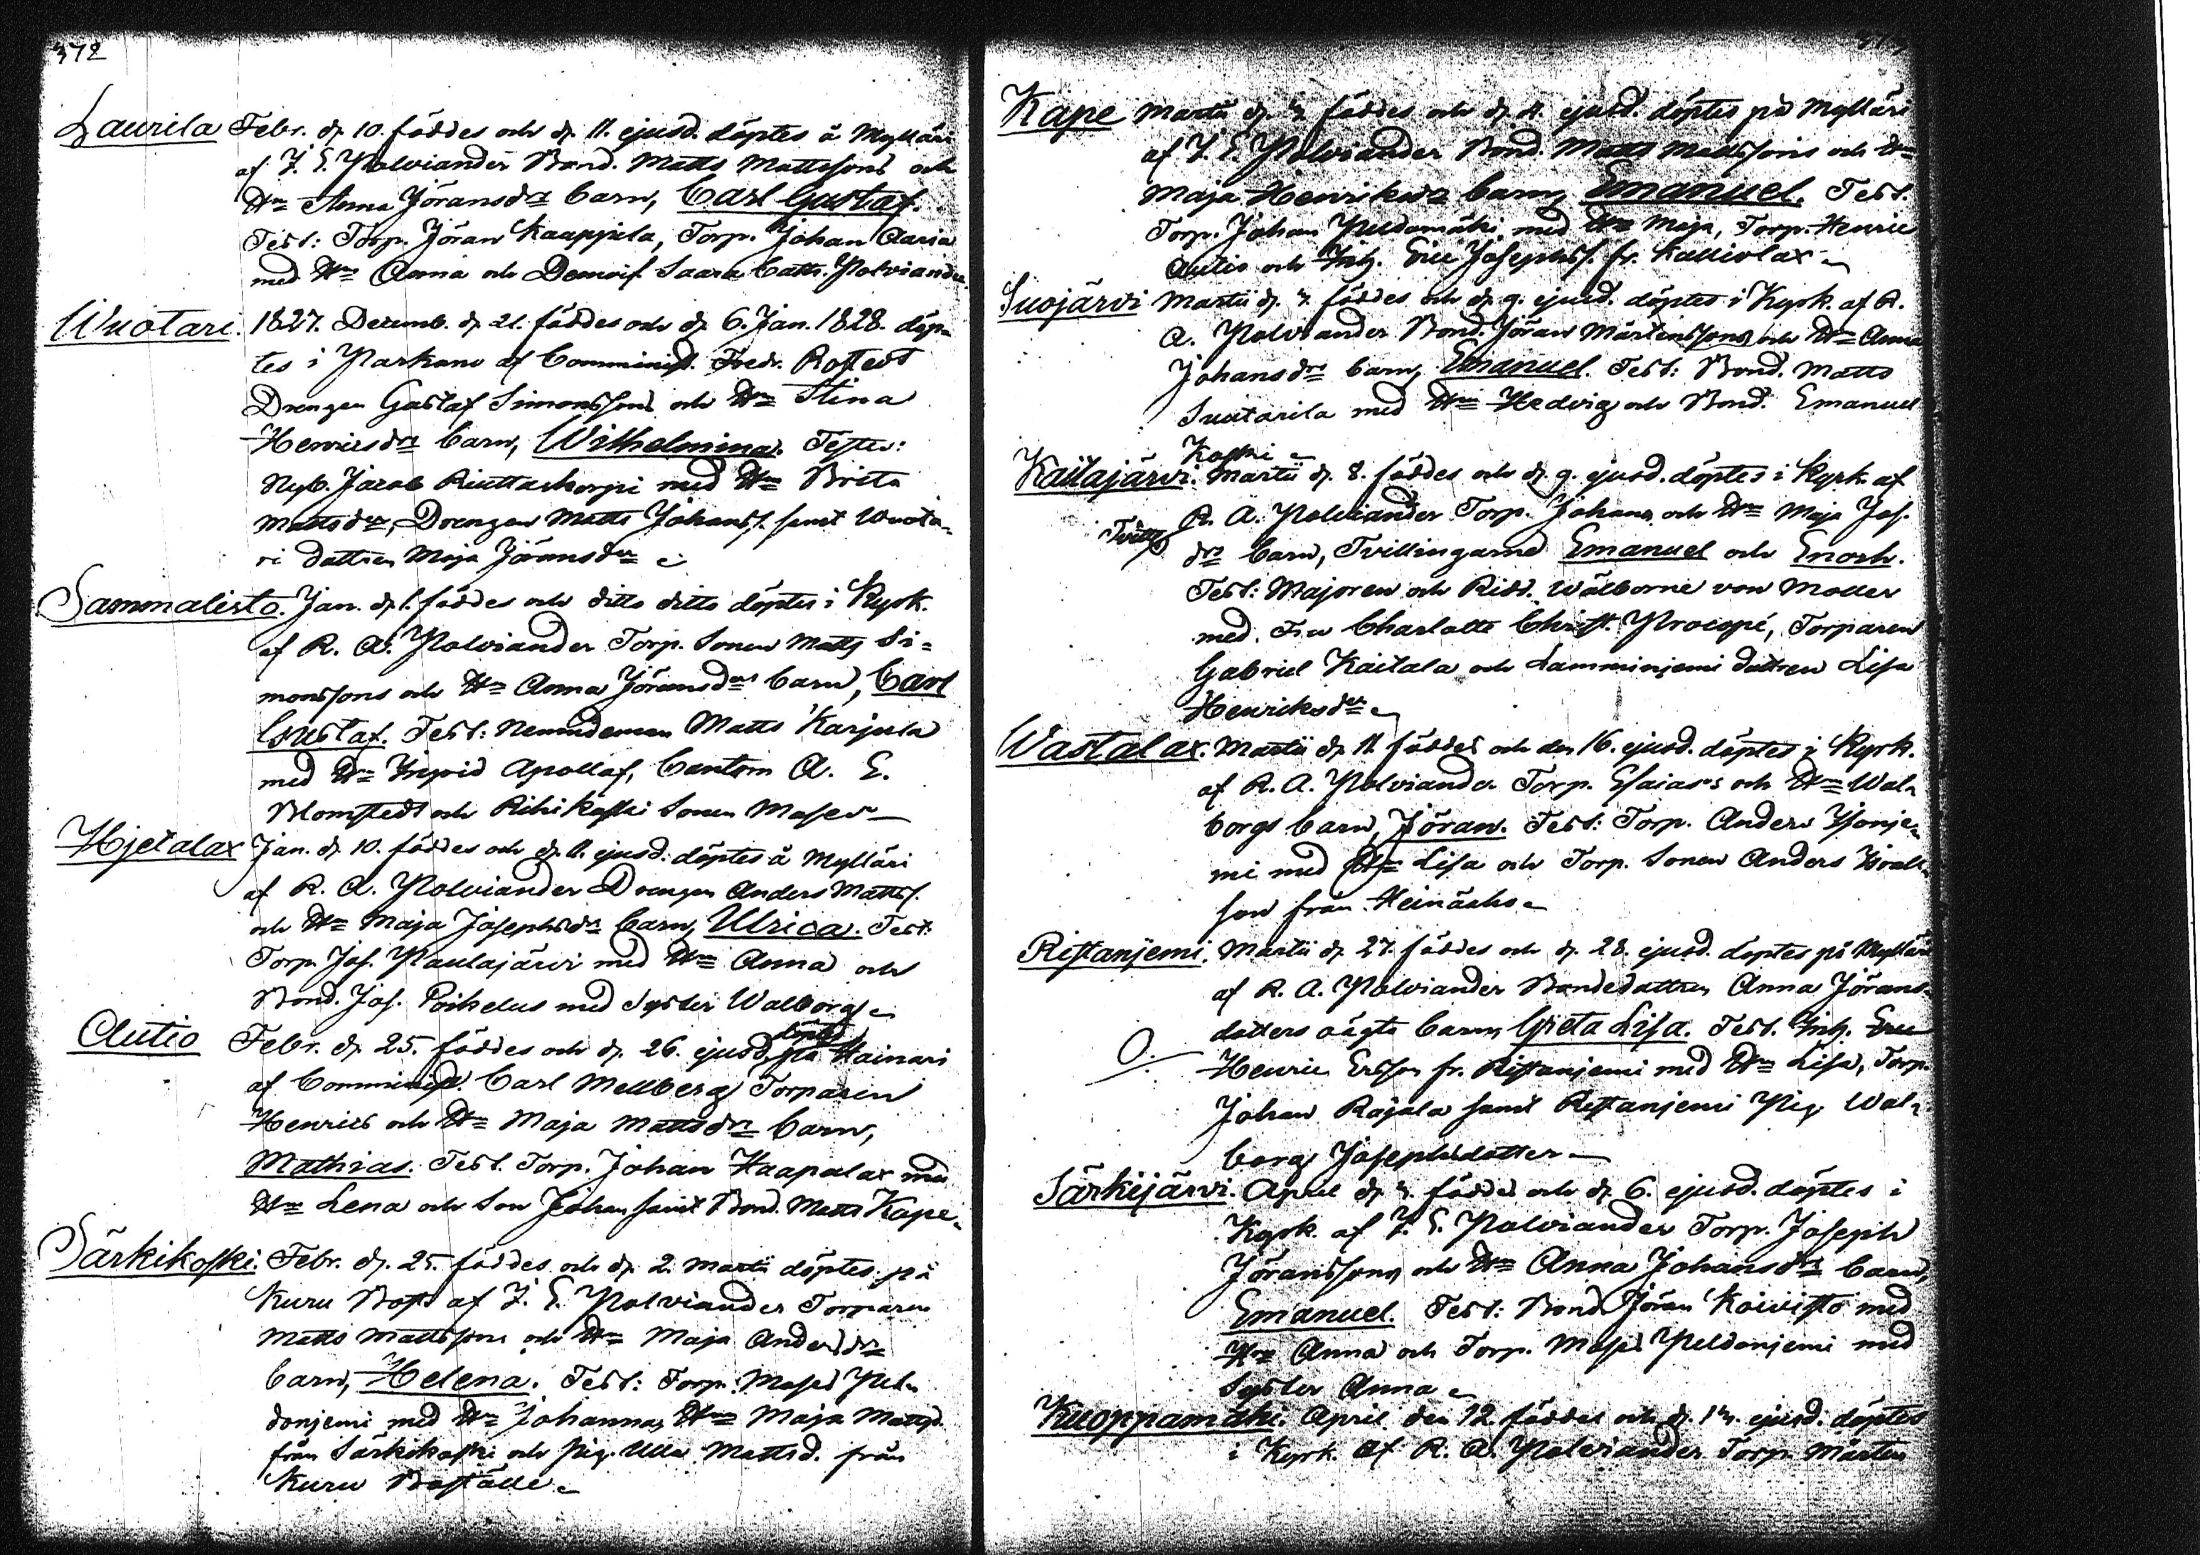 372
Laurila Febr. d. 10. föddes och d. 11. ejusd. döptes å Mylläri
af J. E. Polviander Bond. Matts Mattssons och
Hu Anna Jöransdrs barn, Carl Gustaf.
Test: Torp. Jöran Kaappila, Torp. Johan Aaria
med Hu Anna och Demois. Saara Cath. Polviander.
Wuotari. 1827. Decemb. d. 21. föddes och d. 6. Jan. 1828. döp-
tes i Parkano af Comminist. Fredr. Rostedt
Drengen Gustaf Simonssons och Hu Stina
Henricsdrs barn, Wilhelmina. Testes:
Nyb. Jacob Riuttaskorpi med Hu Brita
Mattsdr, Drengen Matts Johanss. samt Wuota-
ri dottren Maja Jöransdr
Sammalisto. Jan. d. 1. föddes och ditto ditto döptes i Kyrk.
af R. A. Polviander Torp. Sonen Matts Si-
monssons och Hu Anna Jöransdrs barn, Carl
Gustaf. Test: Nemndeman Matts Karjula
med Hu Ingrid Apollof, Cantorn A. E.
Blomstedt och Rihikoski Sonen Moses
Hjetalax Jan. d. 10. föddes och d. 11. ejusd. döptes å Mylläri
af R. A. Polviander Drengen Anders Mattss.
och Hu Maja Josephsdrs barn, Ulrica. Test:
Torp. Jos. Paulajärvi med Hu Anna och
Bond. Jos. Poikelus med Syster Walborg
Autio Febr. d. 25. föddes och d. 26. ejusd. döptes på Hainari
af Comminist. Carl Mellberg Torparen
Henrics och Hu Maja Mattsdrs barn,
Mathias. Test. Torp. Johan Haapalax med
Hu Lena och Son Johan samt Bond. Matts Kape
Särkikoski. Febr. d. 25. föddes och d. 2. Martii döptes på
Kuru Bost. af J. E. Polviander Torparen
Matts Mattssons och Hu Maja Andersdrs
barn, Helena. Test: Torp. Moses Pel-
donjemi med Hu Johanna, Hu Maja Mattsd.
från Särkikoski och Pig. Ulla Mattsd. från
Kuru Boställe
Kape Martii d. 4. föddes och d. 4. ejusd. döptes på Mylläri
af J. E. Polviander Bond. Matts Mattssons och Hu
Maja Henriksdrs barn, Emanuel. Test.
Torp. Johan Peldomäki med Hu Maja, Torp. Henric
Autio och Inh. Eric Josephss. fr. Kalliolax
Suojärvi Martii d. 4. föddes och d. 9. ejusd. döptes i Kyrk. af R.
A. Polviander Bond. Jöran Mårtenssons och Hu Anna
Johansdrs barn, Emanuel. Test: Bond. Matts
Suutarila med Hu Hedvig och Bond. Emanuel
Koski
Kaitajärvi. Martii d. 8. föddes och d. 9. ejusd. döptes i Kyrk. af
R. A. Polviander Torp. Johans och Hu Maja Jos.
Tvill. drs barn, Tvillingarne Emanuel och Enoch.
Test: Majoren och Ridd. Wälborne von Moller
med Fru Charlotte Christ. Procopé, Torparen
Gabriel Kaitala och Lamminjemi dottren Lisa
Henriksdr
Wastalax. Martii d. 11. föddes och den 16. ejusd. döptes i Kyrk.
af R. A. Polviander Torp. Esaias's och Hu Wal-
borgs barn, Jöran. Test: Torp. Anders Isonje-
mi med Hu Lisa och Torp. Sonen Anders
son från Heinäaho
Ristanjemi. Martii d. 27. föddes och d. 28. ejusd. döptes på Mylläri
af R. A. Polviander Bondedottren Anna Jörans-
dotters oägta barn, Greta Lisa. Test. Inh. Eric
O. Henric Ersson fr. Ristanjemi med Hu Lisa, Torp.
Johan Rajala samt Ristanjemi Pig. Wal-
borg Josephsdotter
Särkijärvi. April d. 4. föddes och d. 6. ejusd. döptes i
Kyrk. af J. E. Polviander Torp. Joseph
Jöranssons och Hu Anna Johansdrs barn,
Emanuel. Test: Bond. Jöran Koivisto med
Hu Anna och Torp. Moses Peldonjemi med
Syster Anna
Kuoppamäki. April den 12. föddes och d. 14. ejusd. döptes
i Kyrk. af R. A. Polviander Torp. Mårten